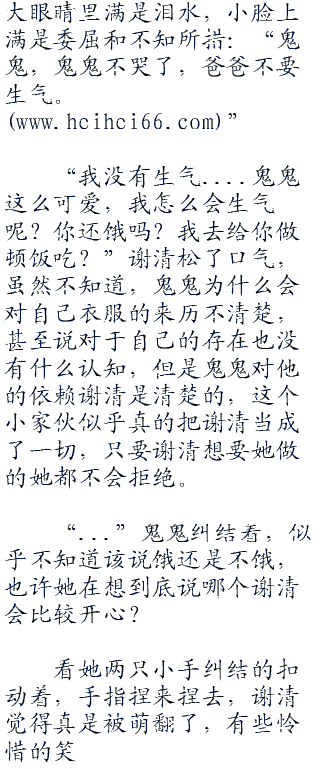 大眼睛里满是泪水，小脸上
满是委屈和不知所措：“鬼
鬼，鬼鬼不哭了，爸爸不要
生气。
(www.hcihci66.com)”
“我没有生气....鬼鬼
这么可爱，我怎么会生气
呢？你还饿吗？我去给你做
顿饭吃？”谢清松了口气，
虽然不知道，鬼鬼为什么会
对自己衣服的来历不清楚，
甚至说对于自己的存在也没
有什么认知，但是鬼鬼对他
的依赖谢清是清楚的，这个
小家伙似乎真的把谢清当成
了一切，只要谢清想要她做
的她都不会拒绝。
“...”鬼鬼纠结着，似
乎不知道该说饿还是不饿，
也许她在想到底说哪个谢清
会比较开心？
看她两只小手纠结的扣
动着，手指捏来捏去，谢清
觉得真是被萌翻了，有些怜
惜的笑